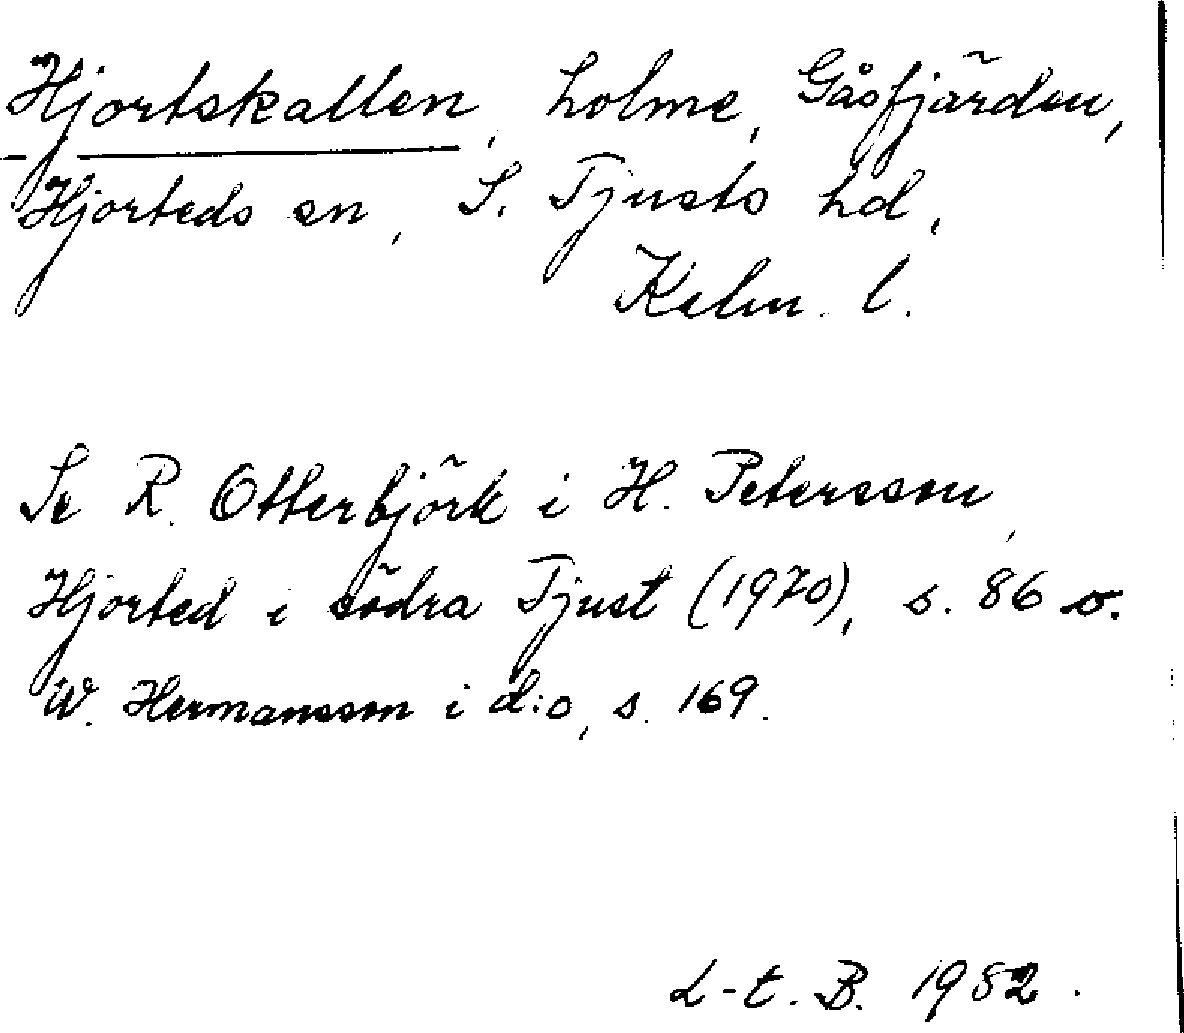 Hjortskallen, holme, Gåsfjärden,
Hjorteds sn, S. Tjusts hd,
Kalm. l.
Se R. Otterbjörk i H. Petersson,
Hjorted i södra Tjust (1970), s. 86 o.
W. Hermansson i d:o, s. 169.
L-t. B. 1982.